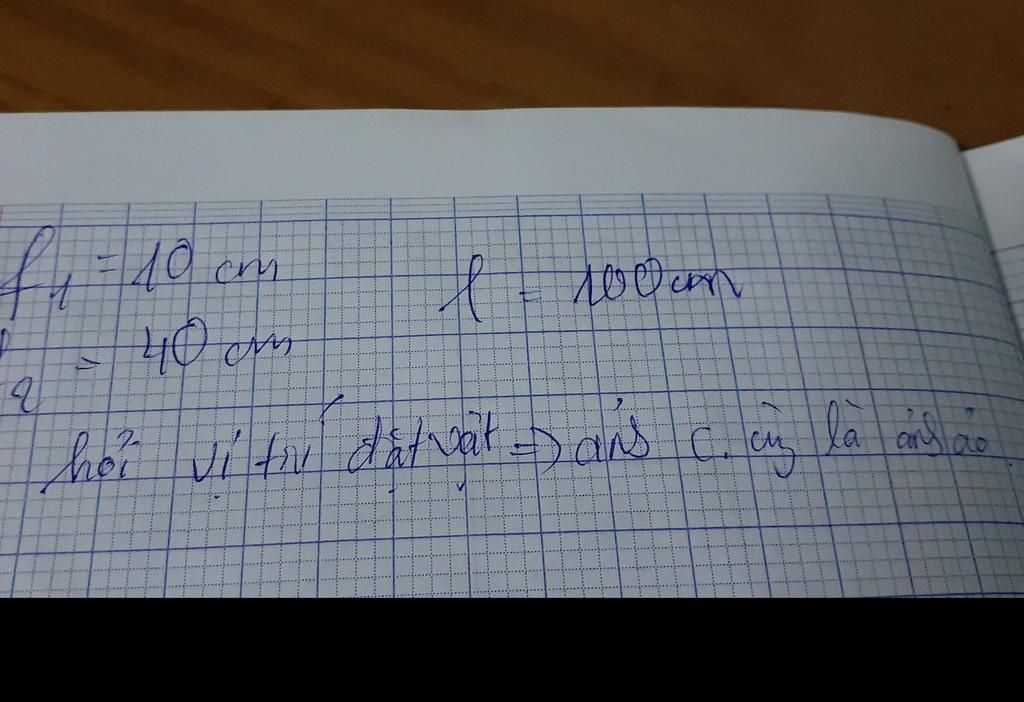 f1 = 10 cm l = 100 cm
f2 = 40 cm
hỏi vị trí đặt vật => ảnh c. cùg là ảnh ảo.